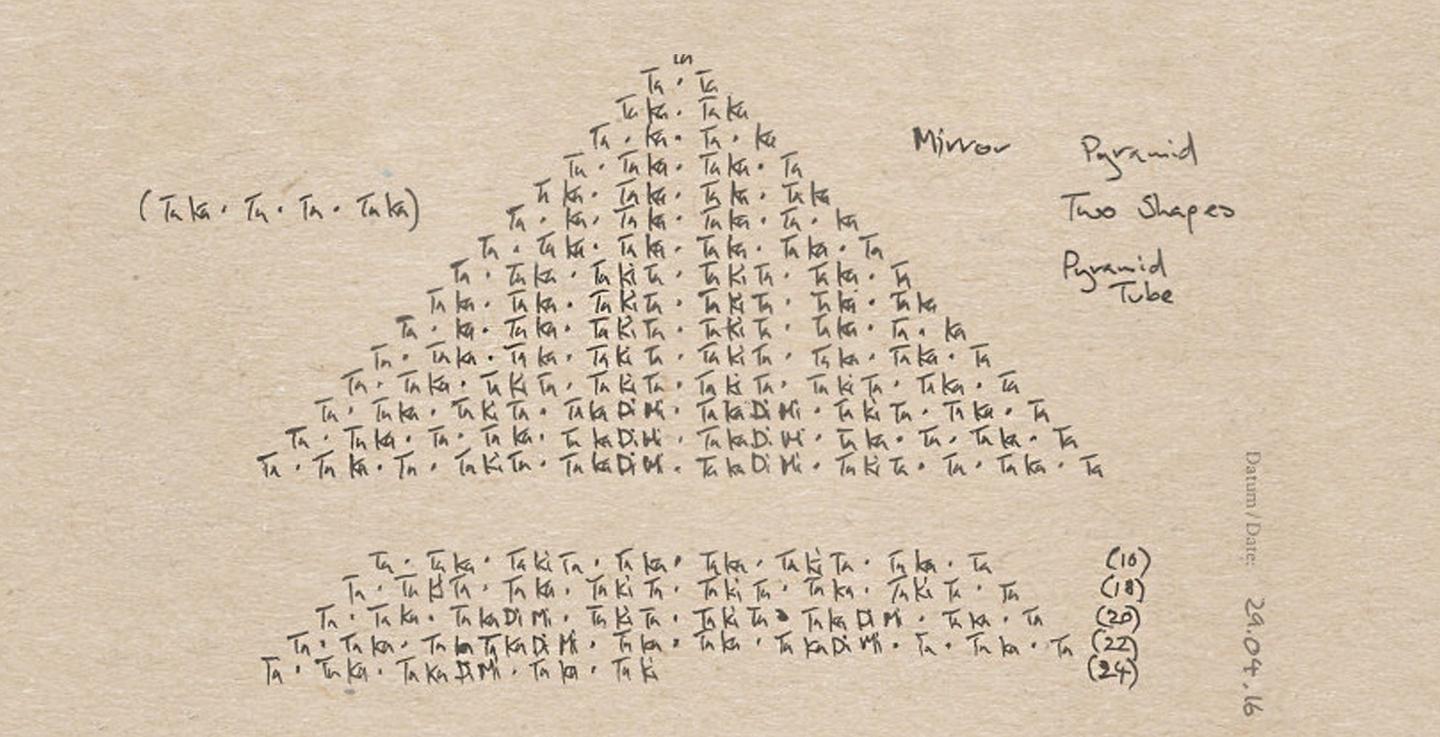 Ta · Ta
Ta ka · Ta ka
Ta · ka · Ta · ka
Ta · Ta ka · Ta ka · Ta
Ta ka · Ta ka · Ta ka · Ta ka
Ta · ka · Ta ka · Ta ka · Ta · ka
Ta · Ta ka · Ta ka · Ta ka · Ta ka · Ta
Ta · Ta ka · Ta Ki Ta · Ta Ki Ta · Ta ka · Ta
Ta ka · Ta ka · Ta Ki Ta · Ta Ki Ta · Ta ka · Ta ka
Ta · ka · Ta ka · Ta Ki Ta · Ta Ki Ta · Ta ka · Ta · ka
Ta · Ta ka · Ta ka · Ta Ki Ta · Ta ki Ta · Ta ka · Ta ka · Ta
Ta · Ta ka · Ta Ki Ta · Ta Ki Ta · Ta ki Ta · Ta ki Ta · Ta ka · Ta
Ta · Ta ka · Ta Ki Ta · Ta ka Di Mi · Ta ka Di Mi · Ta ki Ta · Ta ka · Ta
Ta · Ta ka · Ta · Ta ka · Ta ka Di Mi · Ta ka Di Mi · Ta ka · Ta · Ta ka · Ta
Ta · Ta ka · Ta · Ta Ki Ta · Ta ka Di Mi · Ta ka Di Mi · Ta Ki Ta · Ta · Ta ka · Ta
(Ta ka · Ta · Ta · Ta ka)
Mirror
Pyramid
Two Shapes
Pyramid
Tube
Ta · Ta ka · Ta ki Ta · Ta ka · Ta ka · Ta ki Ta · Ta ka · Ta (16)
Ta · Ta ki Ta · Ta ka · Ta ki Ta · Ta ki Ta · Ta ka · Ta ki Ta · Ta (18)
Ta · Ta ka · Ta ka Di Mi · Ta ki Ta · Ta ki Ta · Ta ka Di Mi · Ta ka · Ta (20)
Ta · Ta ka · Ta Ta ka Di Mi · Ta ka · Ta ka · Ta ka Di Mi · Ta · Ta ka · Ta (22)
Ta · Ta ka · Ta ka Di Mi · Ta ka · Ta ki (24)
Datum / Date: 29.04.16